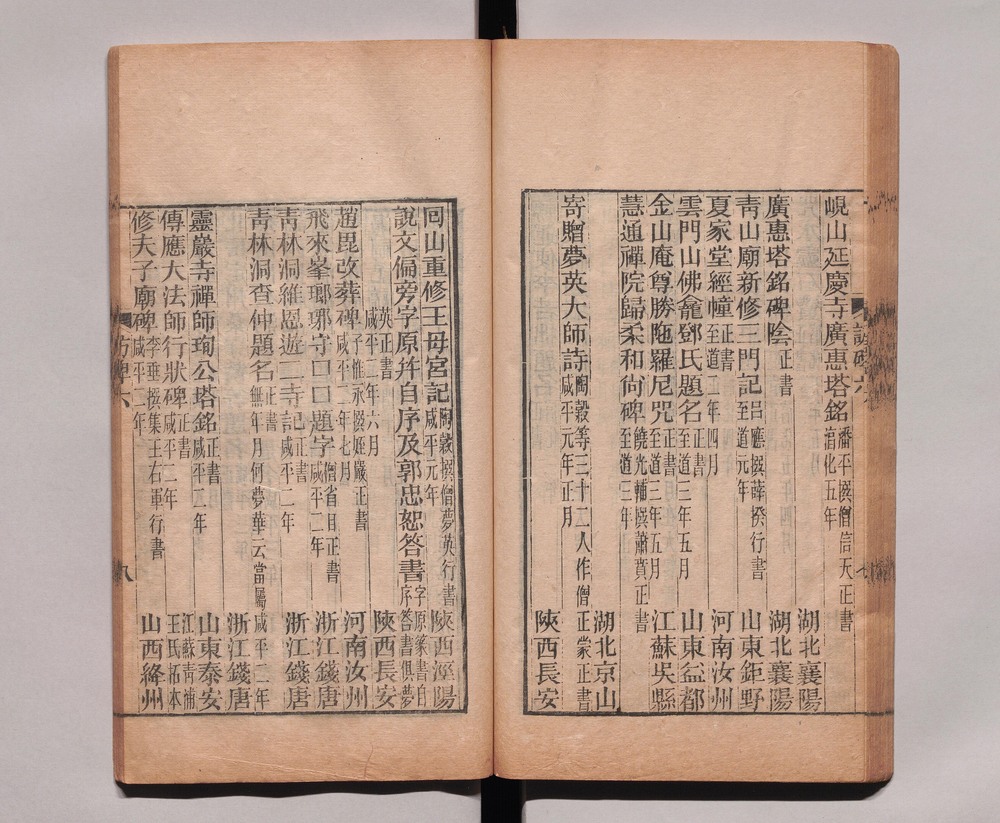 峴山延慶寺廣惠塔銘 潘平撰僧信天正書 淳化五年 湖北襄陽
廣惠塔銘碑陰 正書 湖北襄陽
青山廟新修三門記 呂應撰薛揆行書 至道元年 山東鉅野
夏家堂經幢 正書 至道二年四月 河南汝州
雲門山佛龕鄧氏題名 正書 至道三年五月 山東益都
金山庵尊勝陁羅尼咒 正書 至道三年五月 江蘇吳縣
慧通禪院歸柔和尙碑 饒光輔撰蕭賁正書 至道三年 湖北京山
寄贈夢英大師詩 陶穀等三十二人作僧正蒙正書 咸平元年正月 陝西長安
回山重修王母宮記 陶穀撰僧夢英行書 咸平元年 陝西涇陽
說文偏旁字原幷自序及郭忠恕答書 字原篆書自序答書俱夢
英正書 咸平二年六月 陝西長安
趙毘改葬碑 子惟永撰姪嚴正書 咸平二年七月 河南汝州
飛來峯瑯琊守口口題字 僧省目正書 咸平二年 浙江錢唐
青林洞維恩遊二寺記 正書 咸平二年 浙江錢唐
青林洞查仲題名 正書 無年月何夢華云當屬咸平二年 浙江錢唐
靈巖寺禪師珣公塔銘 正書 咸平二年 山東泰安
傳應大法師行狀碑 正書 咸平二年 江蘇靑浦王氏拓本
修夫子廟碑 李垂撰集王右軍行書 咸平二年 山西絳州
訪碑六
八